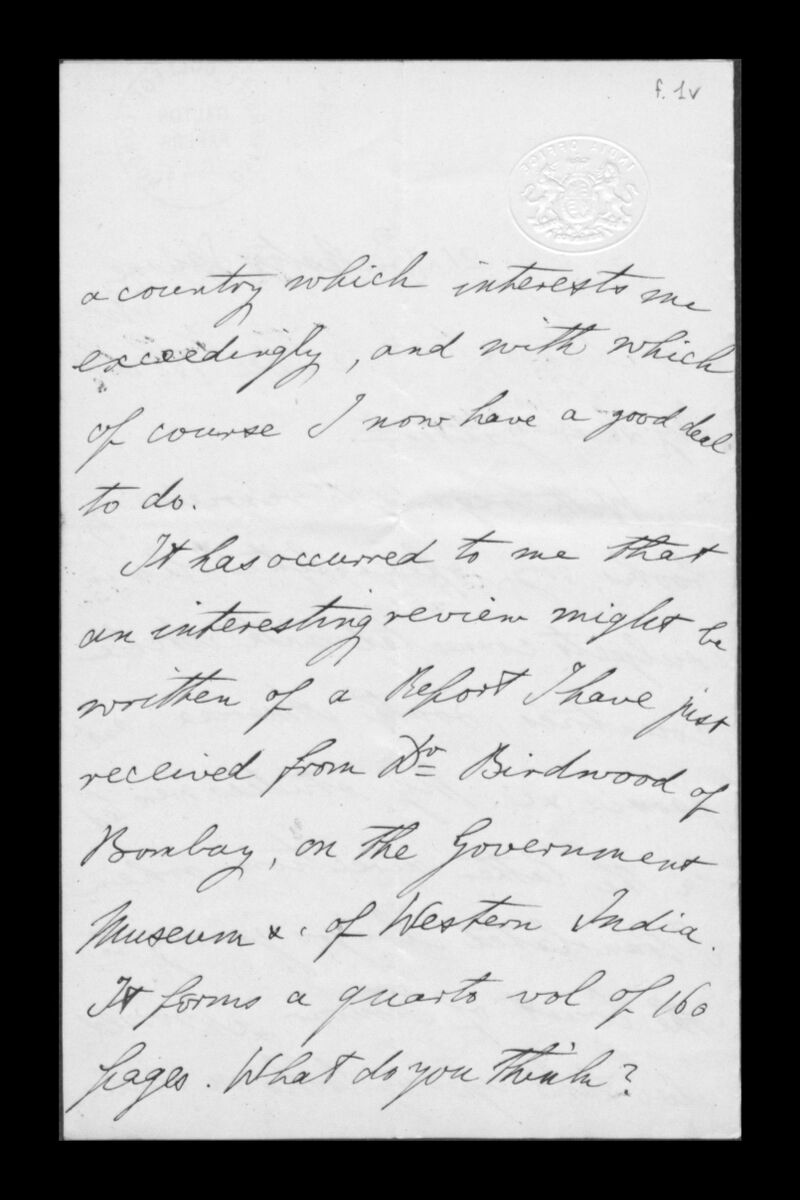 f. 1v
INDIA OFFICE
a country which interests me
exceedingly, and with which
of course I now have a good deal
to do.
It has occurred to me that
an interesting review might be
written of a Report I have just
received from Dr Birdwood of
Bombay, on the Government
Museum &c. of Western India.
It forms a quarto vol of 160
pages. What do you think?